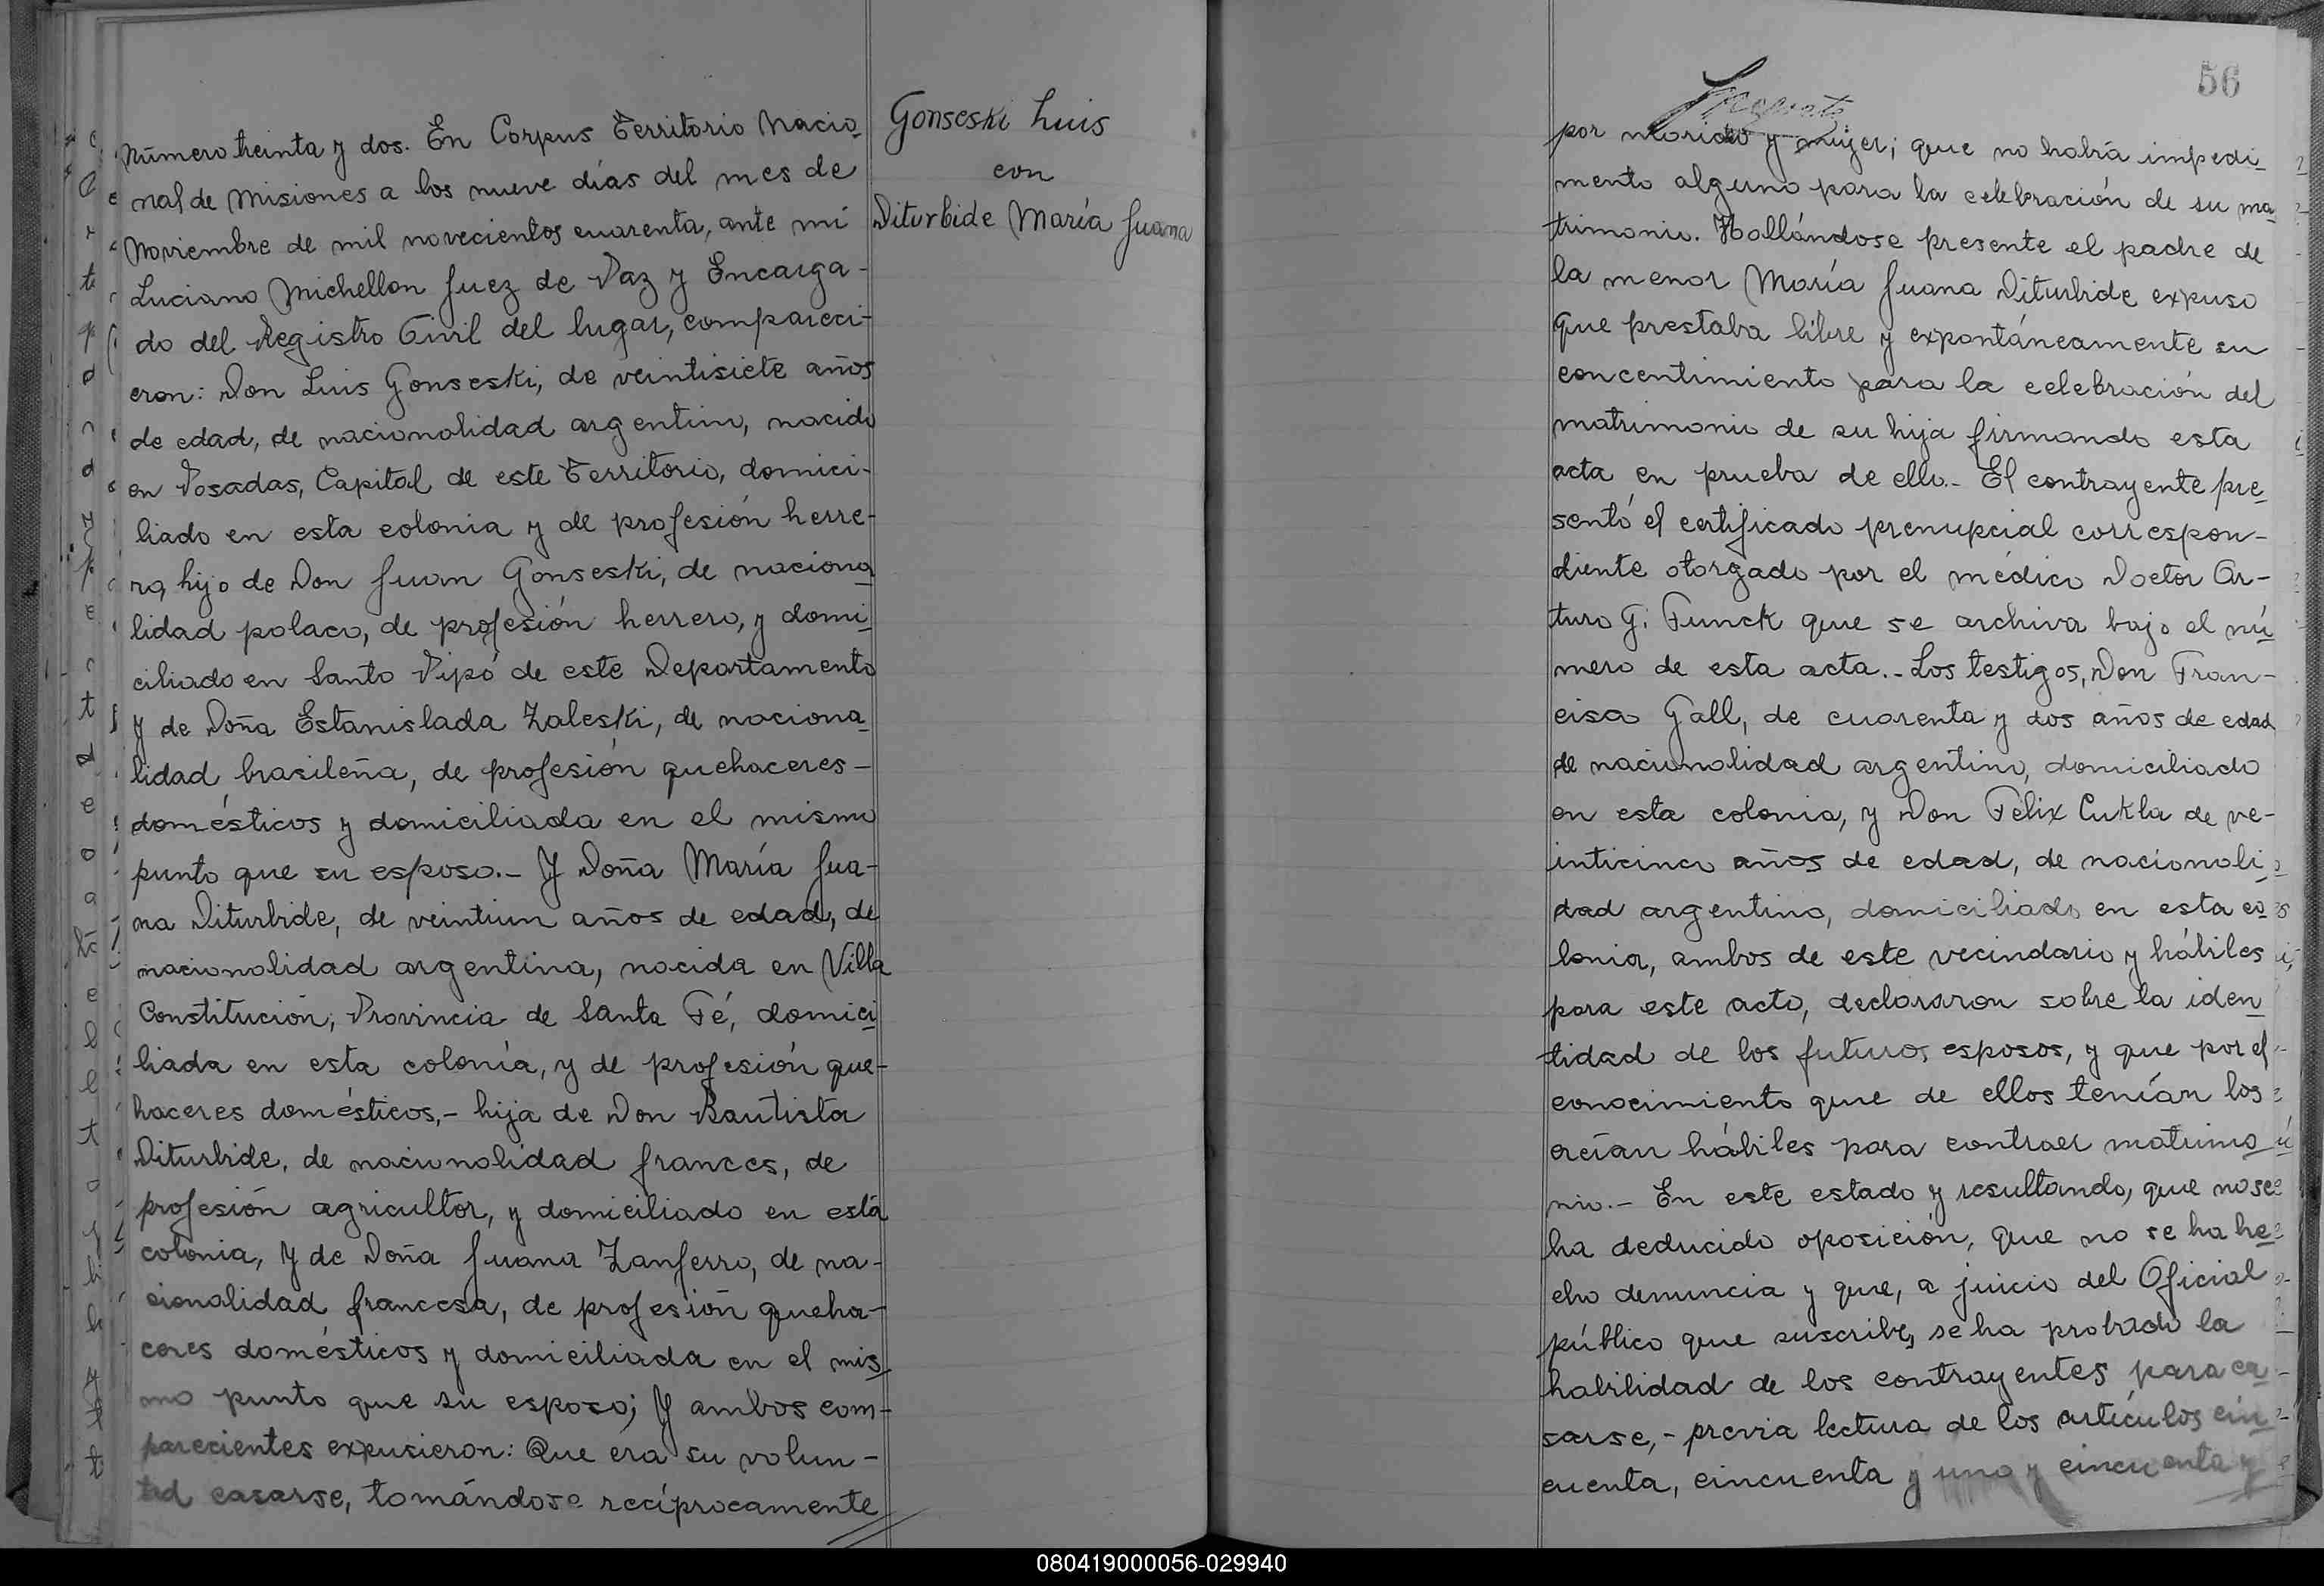 Número treinta y dos. En Corpus Territorio Nacio-
nal de Misiones a los nueve días del mes de
Noviembre de mil novecientos cuarenta, ante mí
Luciano Michellon Juez de Paz y Encarga-
do del Registro Civil del lugar, compareci-
eron: Don Luis Gonseski, de veintisiete años
de edad, de nacionalidad argentino, nacido
en Posadas, Capital de este Territorio, domici-
liado en esta colonia y de profesión herre-
ro, hijo de Don Juan Gonseski, de naciona
lidad polaco, de profesión herrero, y domi
ciliado en Santo Pipó de este Departamento
y de Doña Estanislada Zaleski, de naciona
lidad brasileña, de profesión quehaceres-
domésticos y domiciliada en el mismo
punto que su esposo.- Y Doña María Jua-
na Diturbide, de veintiun años de edad, de
nacionalidad argentina, nacida en Villa
Constitución, Provincia de Santa Fé, domici
liada en esta colonia, y de profesión que-
haceres domésticos,- hija de Don Bautista
Diturbide, de nacionalidad frances, de
profesión agricultor, y domiciliado en esta
colonia, y de Doña Juana Zanferro, de na-
cionalidad francesa, de profesión queha-
ceres domésticos y domiciliada en el mis
mo punto que su esposo; Y ambos com-
parecientes expusieron: Que era su volun-
tad casarse, tomándose recíprocamente
Gonseski Luis
con
Diturbide María Juana
56
por marido y mujer; que no había impedi
mento alguno para la celebración de su ma
trimonio. Hallándose presente el padre de
la menor María Juana Diturbide expuso
que prestaba libre y expontáneamente su
concentimiento para la celebración del
matrimonio de su hija firmando esta
acta en prueba de ello.- El contrayente pre
sentó el certificado prenupcial correspon-
diente otorgado por el médico Doctor Ar-
turo G. Funck que se archiva bajo el nú
mero de esta acta.- Los testigos, Don Fran-
cisco Gall, de cuarenta y dos años de edad
de nacionalidad argentino, domiciliado
en esta colonia, y Don Félix Cukla de ve-
inticinco años de edad, de nacionali
dad argentino, domiciliado en esta co
lonia, ambos de este vecindario y hábiles
para este acto, declararon sobre la iden
tidad de los futuros esposos, y que por el
conocimiento que de ellos tenían los
creían hábiles para contraer matrimo
nio.- En este estado y resultando, que no se
ha deducido oposición, que no se ha he
cho denuncia y que, a juicio del Oficial
público que suscribe, se ha probado la
habilidad de los contrayentes para ca
sarse,- previa lectura de los artículos cin
cuenta, cincuenta y uno y cincuenta y
080419000056-029940